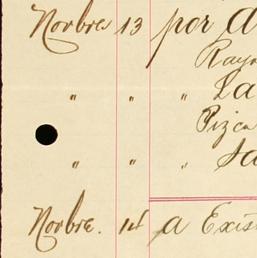 Novbre 13 por a
Ray
" " " La
Pizca
" " " Sa
Novbre. 14 a Exis